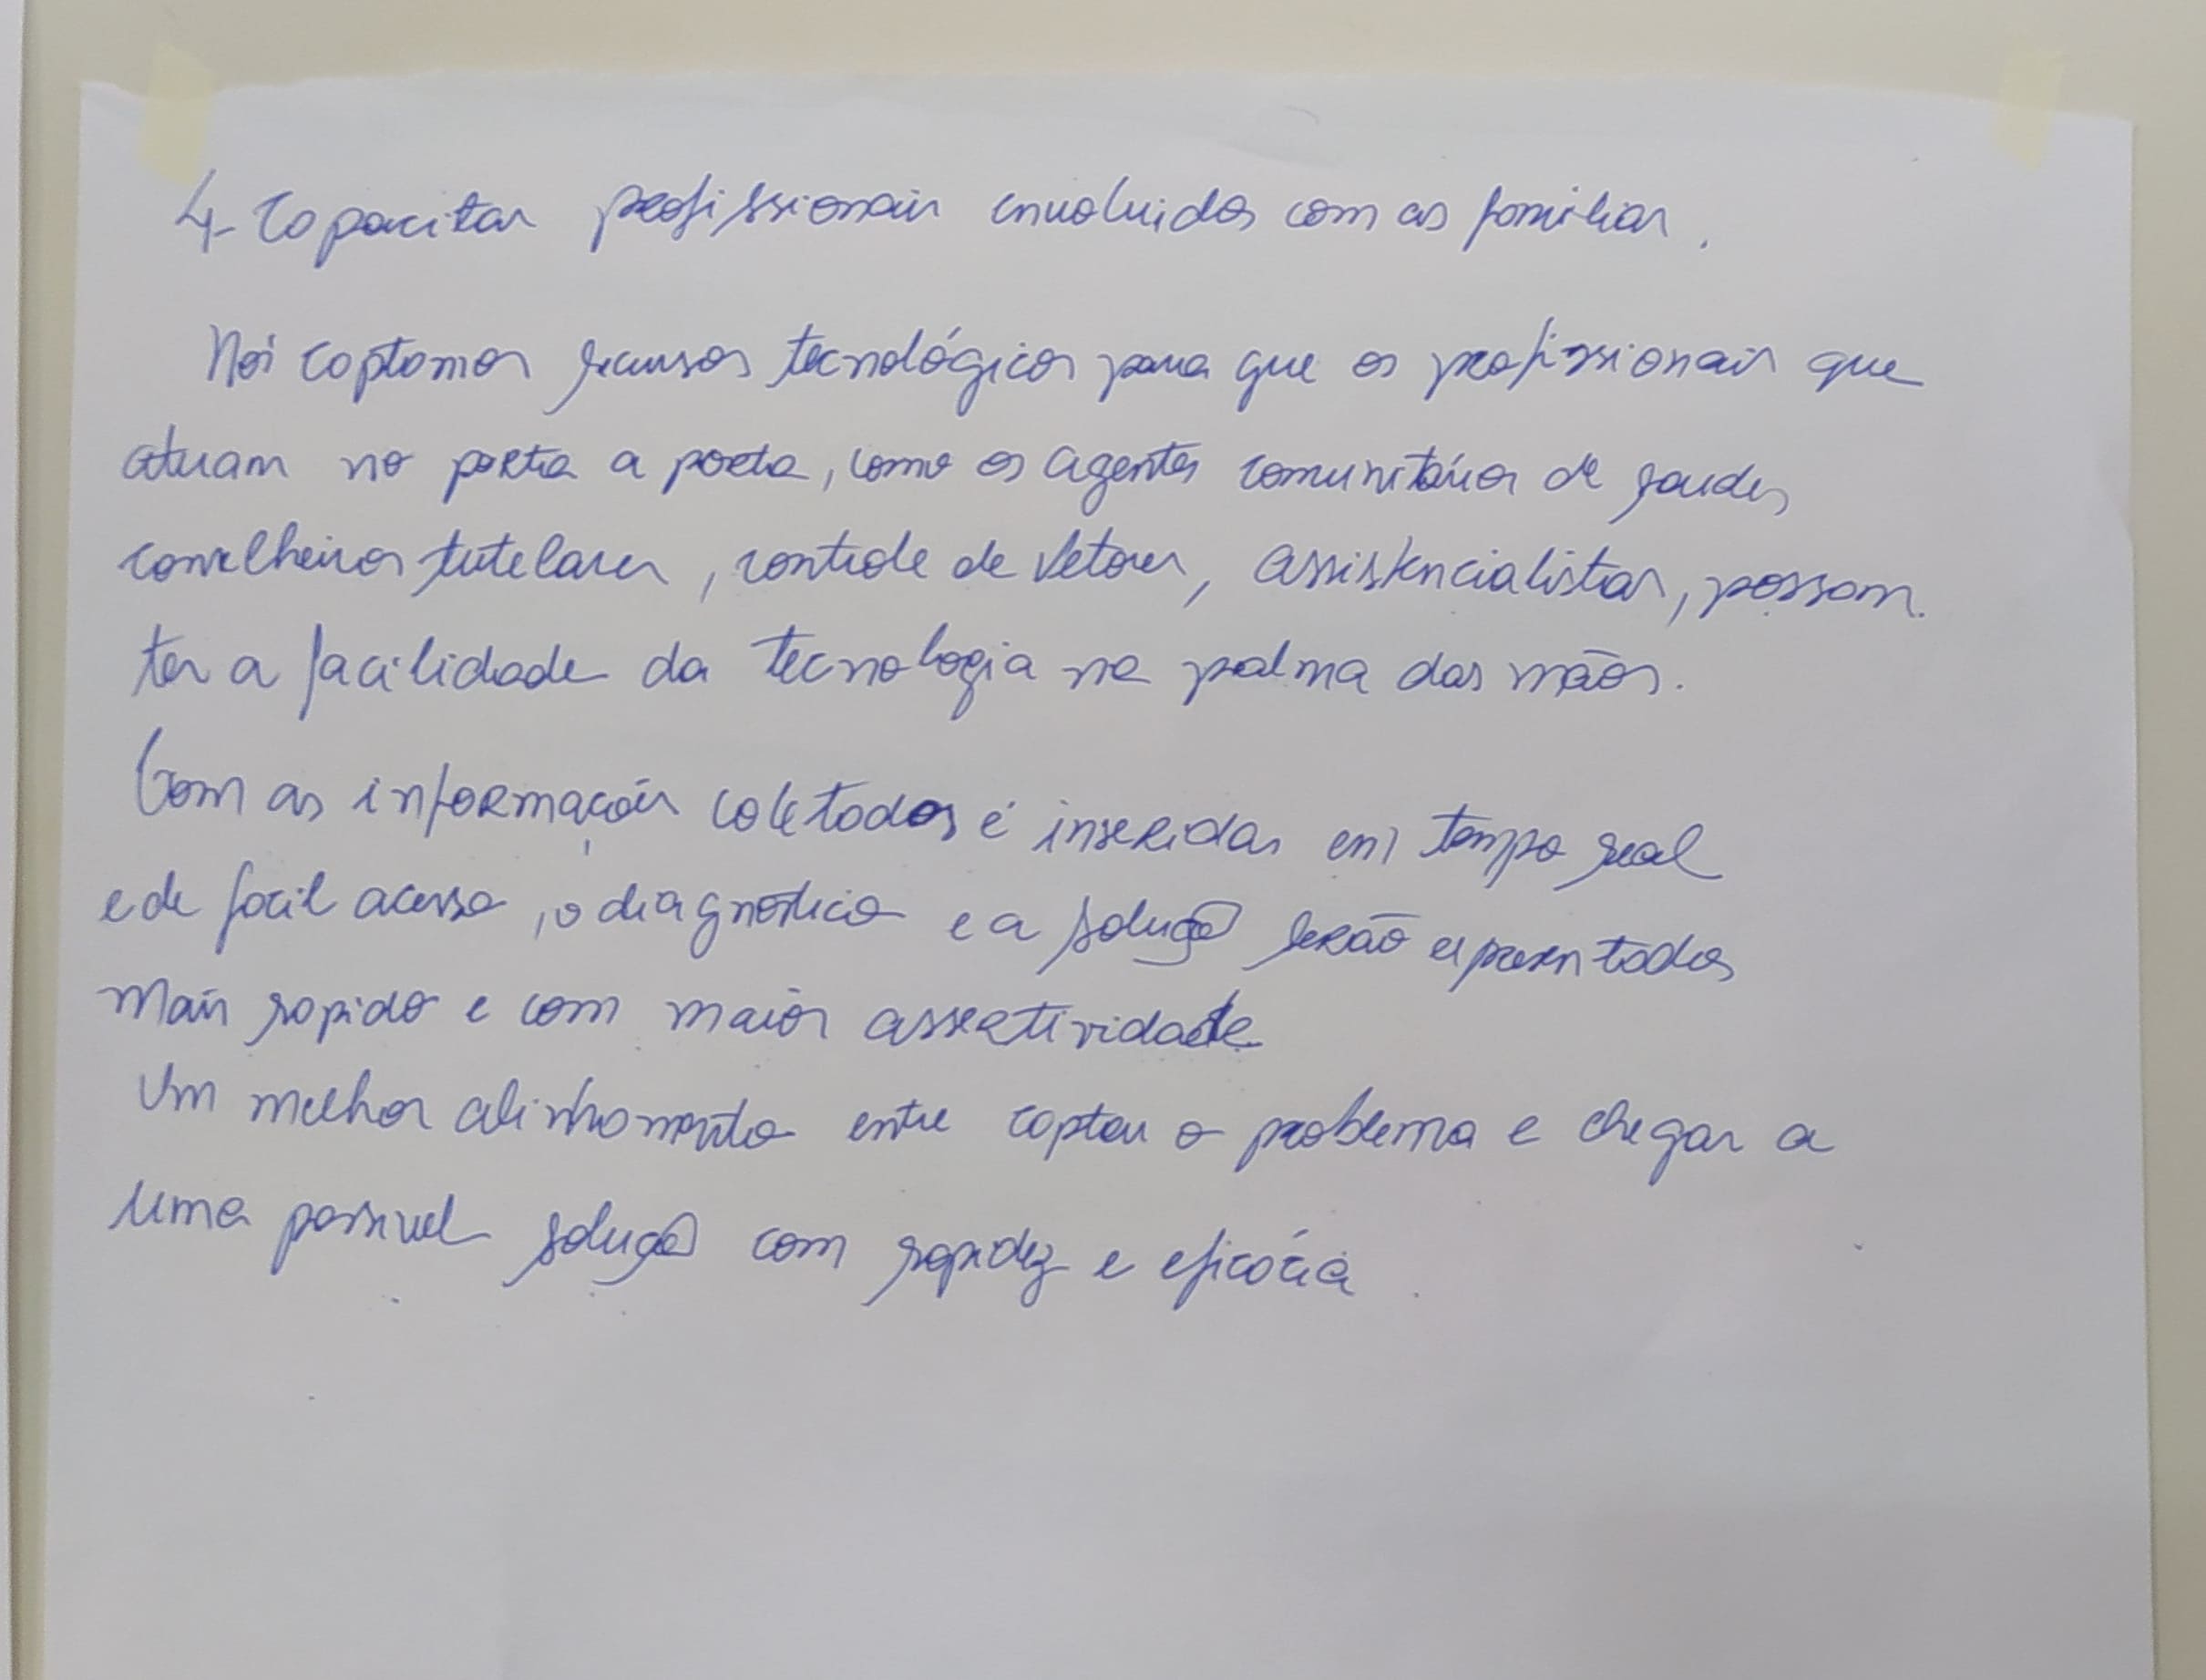 4- Capacitar profissionais envolvidos com as familias.
Nós captamos recursos tecnológicos para que os profissionais que
atuam no porta a porta, como os agentes comunitários de saude,
conselheiros tutelares, controle de vetores, assistencialistas, possam
ter a facilidade da tecnologia na palma das mãos.
Com as informações coletadas é inseridas em tempo real
e de facil acesso, o diagnostico e a solução serão apresentados
mais rapido e com maior assertividade
Um melhor alinhamento entre captar o problema e chegar a
uma possivel solução com rapidez e eficácia.